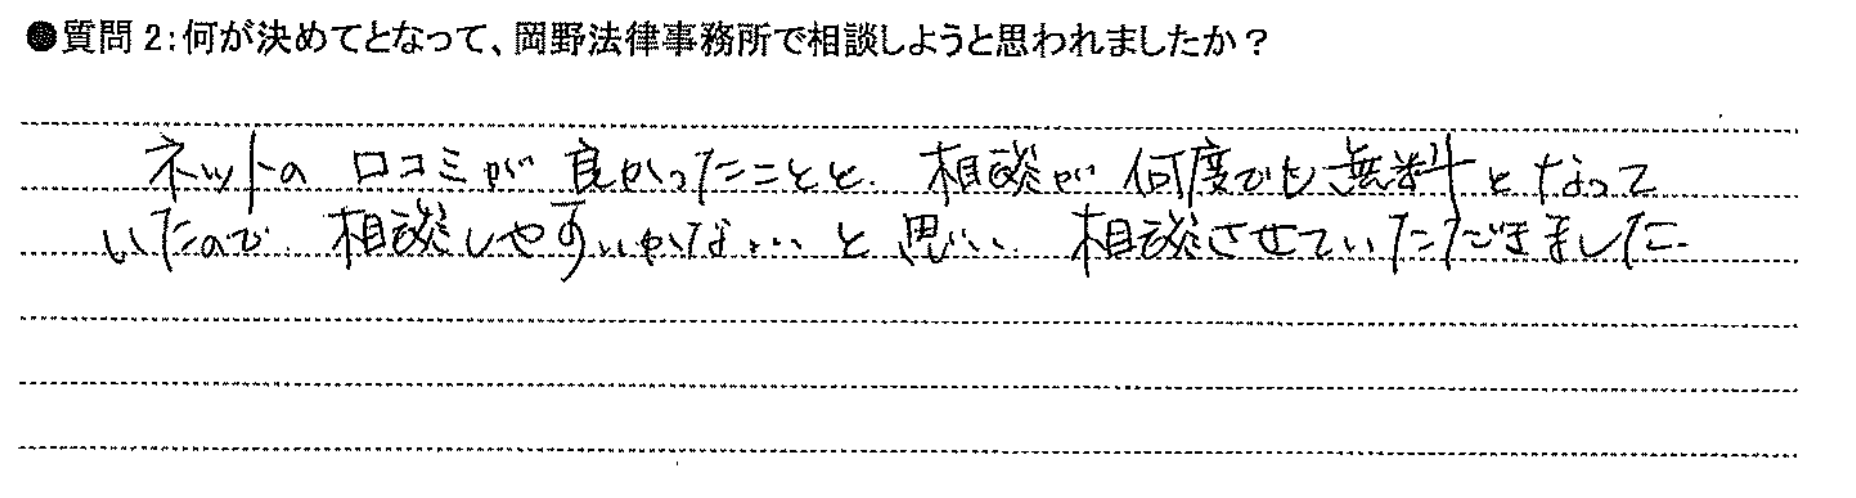 ●質問 2:何が決めてとなって、岡野法律事務所で相談しようと思われましたか？
ネットの 口コミが 良かったことと、相談が 何度でも無料となって
いたので、相談しやすいかな…と思い、相談させていただきました。